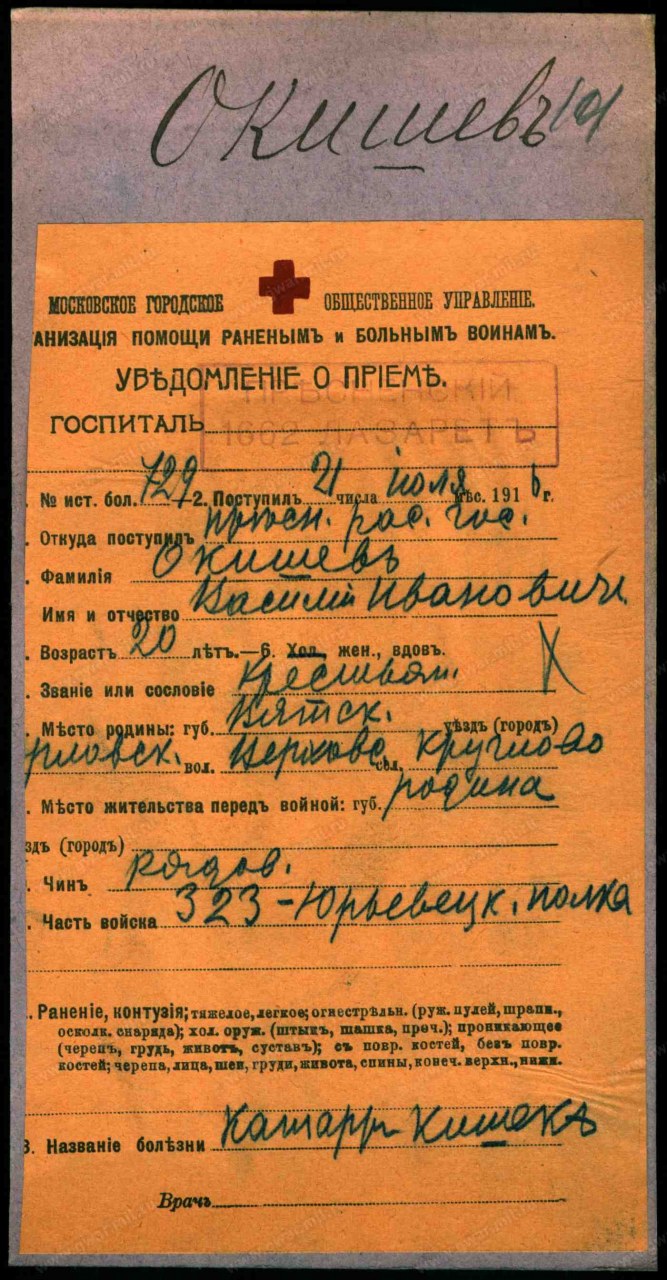 Окишевъ 101
МОСКОВСКОЕ ГОРОДСКОЕ ОБЩЕСТВЕННОЕ УПРАВЛЕНІЕ.
АНИЗАЦІЯ ПОМОЩИ РАНЕНЫМЪ и БОЛЬНЫМЪ ВОИНАМЪ.
УВѢДОМЛЕНІЕ О ПРІЕМѢ.
ПРѢСНЕНСКІЙ
ГОСПИТАЛЬ 1662 ЛАЗАРЕТЪ
. № ист. бол. 729 2. Поступилъ 21 числа іюля мѣс. 1916 г.
. Откуда поступилъ рас. гос.
. Фамилія Окишевъ
Имя и отчество Василій Ивановичъ
. Возрастъ 20 лѣтъ.—6. Хол., жен., вдов.
. Званіе или сословіе крестьян. X
. Мѣсто родины: губ. Вятск. уѣздъ (городъ)
рловск. вол. Верхово сел. Круглово
. Мѣсто жительства передъ войной: губ. родина
здъ (городъ)
. Чинъ рядов.
. Часть войска 323-Юрьевецк. полка
. Раненіе, контузія; тяжелое, легкое; огнестрѣльн. (руж. пулей, шрапн.,
осколк. снаряда); хол. оруж. (штыкъ, шашка, проч.); проникающее
(черепъ, грудь, животъ, суставъ); съ повр. костей, безъ повр.
костей; черепа, лица, шеи, груди, живота, спины, конеч. верхн., нижн.
3. Названіе болѣзни Катарръ кишекъ
Врачъ